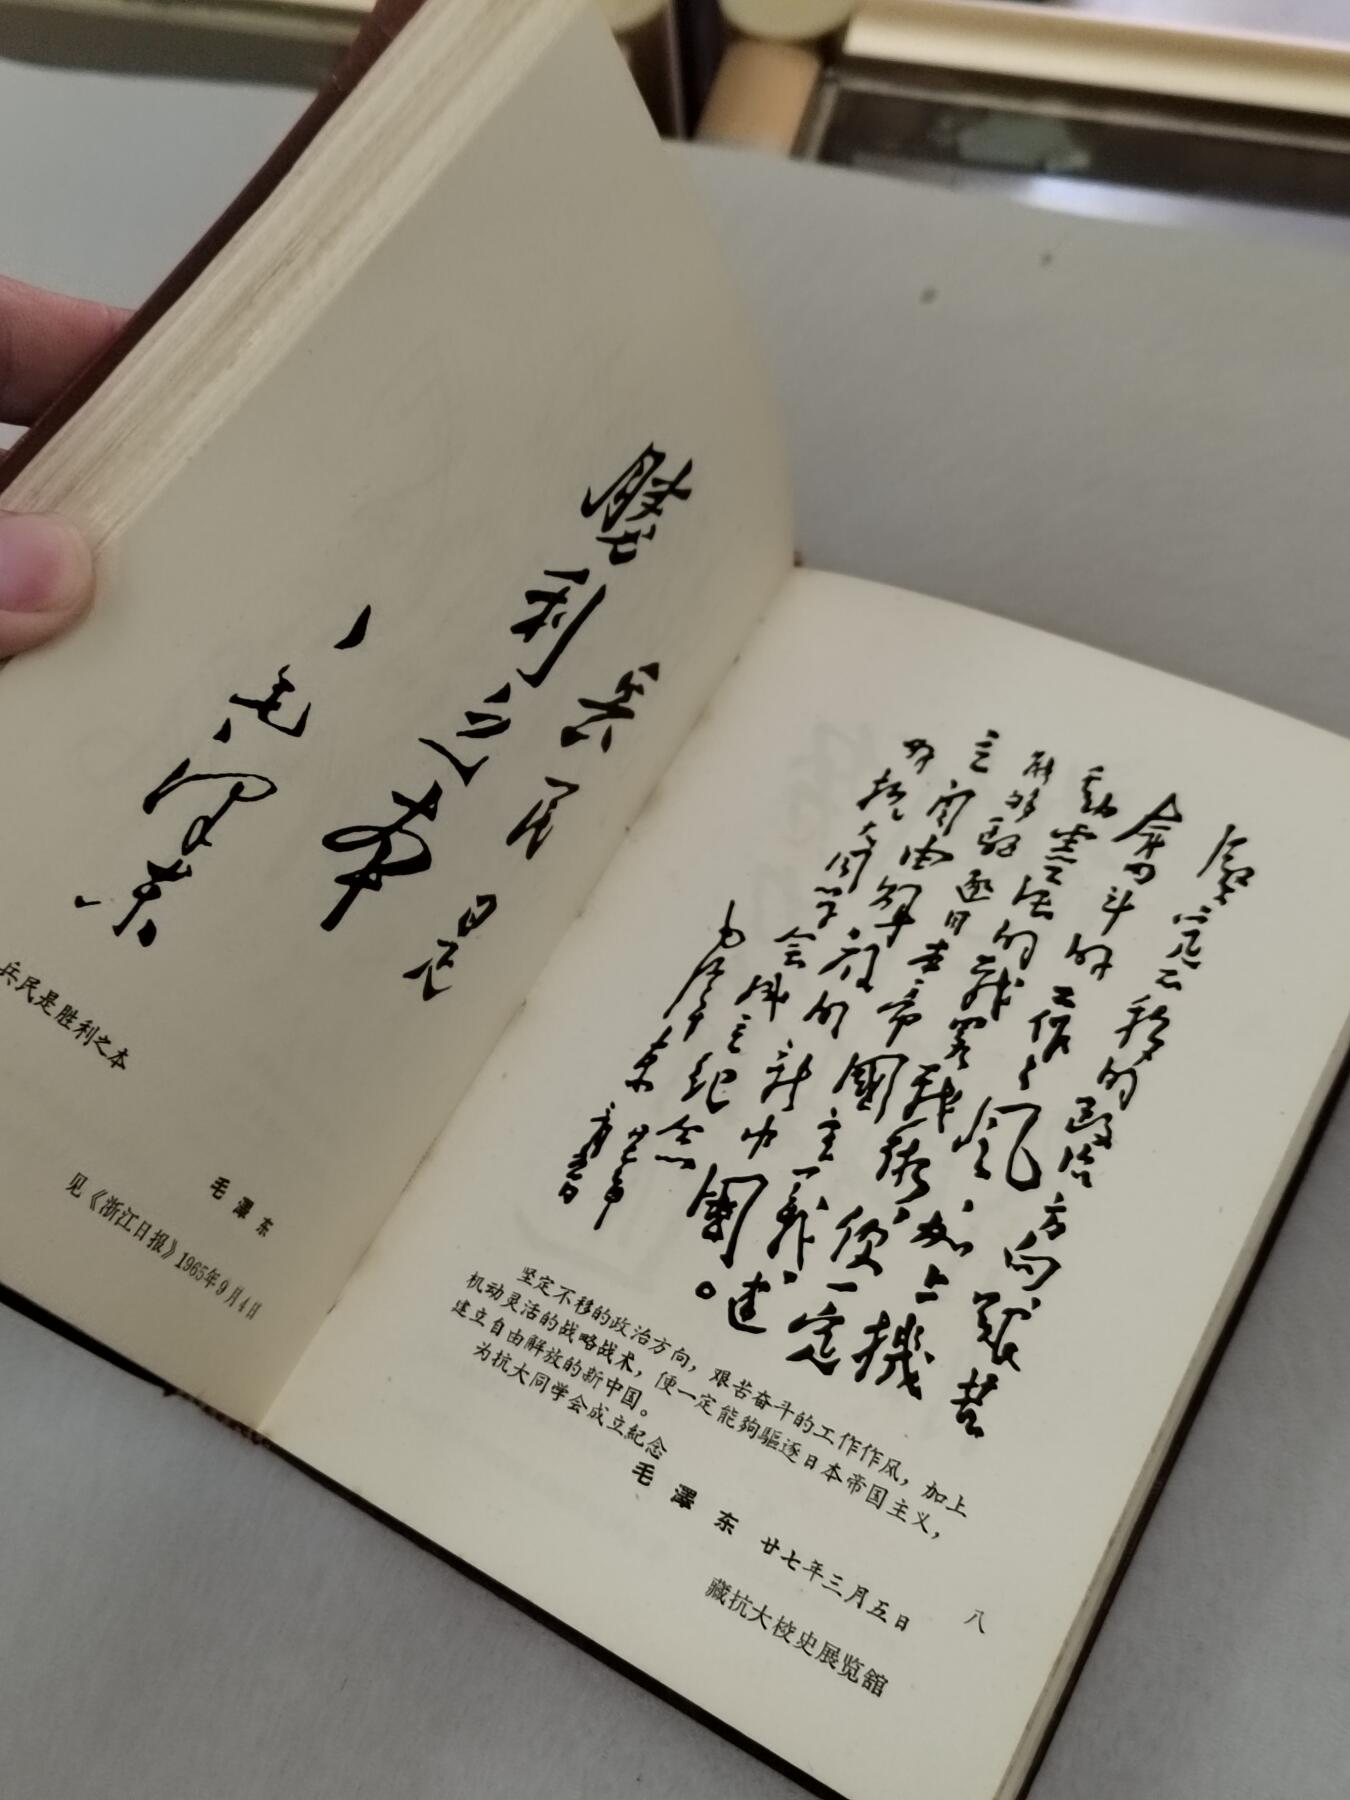 兵民是
勝利之本
毛泽东
兵民是胜利之本
毛澤东
见《浙江日报》1965年9月4日
堅定不移的政治方向,艱苦
奮斗的工作作风,加上機
動靈活的戰畧戰術,便一定
能够驱逐日本帝國主義,建
立自由解放的新中國。
为抗大同学会成立纪念
毛泽东
廿七年
三月五日
坚定不移的政治方向,艰苦奋斗的工作作风,加上
机动灵活的战略战术,便一定能夠驅逐日本帝国主义,
建立自由解放的新中国。
为抗大同学会成立紀念
毛澤东 廿七年三月五日
藏抗大校史展览舘
八